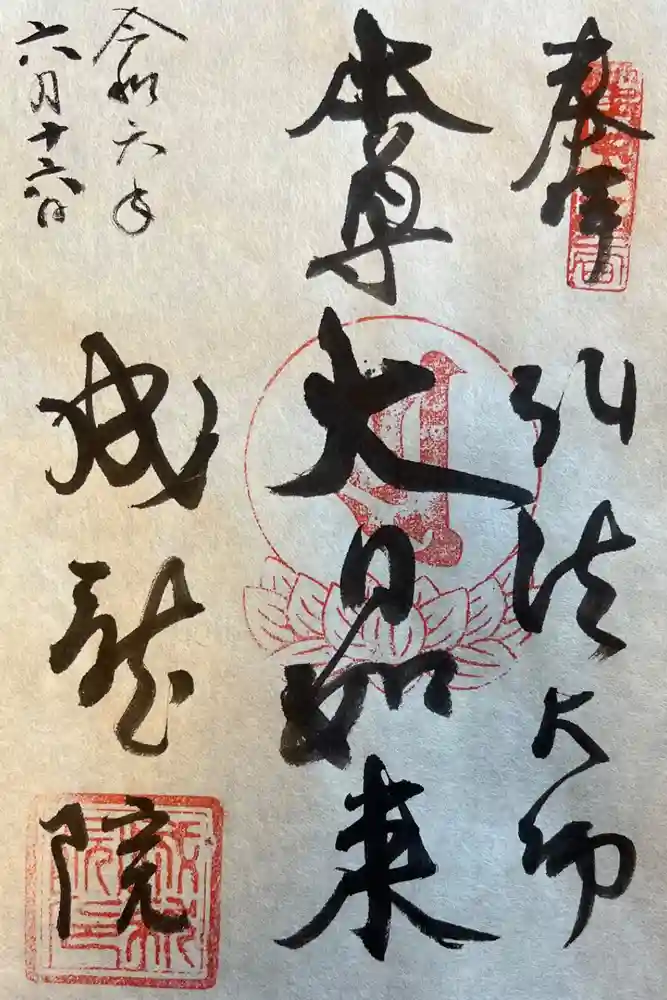 奉拝
弘法大師
本尊
大日如来
令和六年
六月十六日
成就院